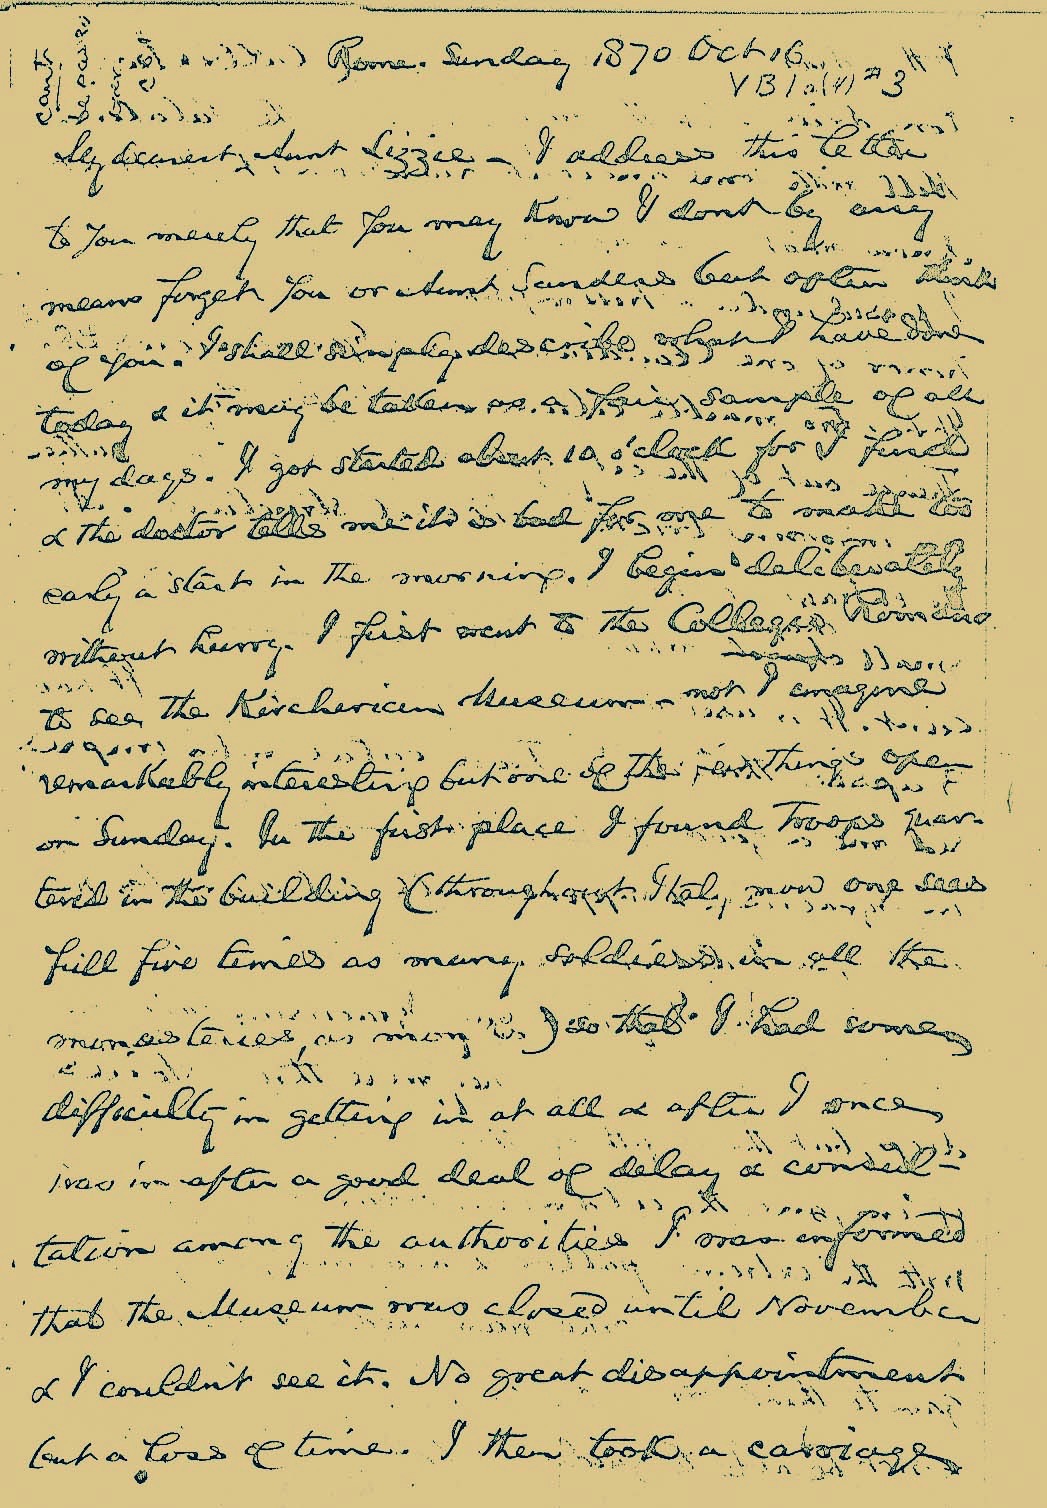 Rome. Sunday 1870 Oct 16
VB1a(4) #3
My dearest Aunt Lizzie – I address this letter
to you merely that you may know I dont by any
means forget you or Aunt Sanders but often think
of you. I shall simply describe what I have done
today & it may be taken as a fair sample of all
my days. I got started about 10 o'clock for I find
& the doctor tells me it is bad for me to make too
early a start in the morning. I begin deliberately
without hurry. I first went to the Collegio Romano
to see the Kircherian Museum – not I imagine
remarkably interesting but one of the few things open
on Sunday. In the first place I found Troops quar-
tered in the building (throughout Italy now one sees
full five times as many soldiers in all the
monasteries, as monks) so that I had some
difficulty in getting in at all & after I once
was in after a good deal of delay & consul-
tation among the authorities I was informed
that the Museum was closed until November
& I couldn't see it. No great disappointment
but a loss of time. I then took a carriage